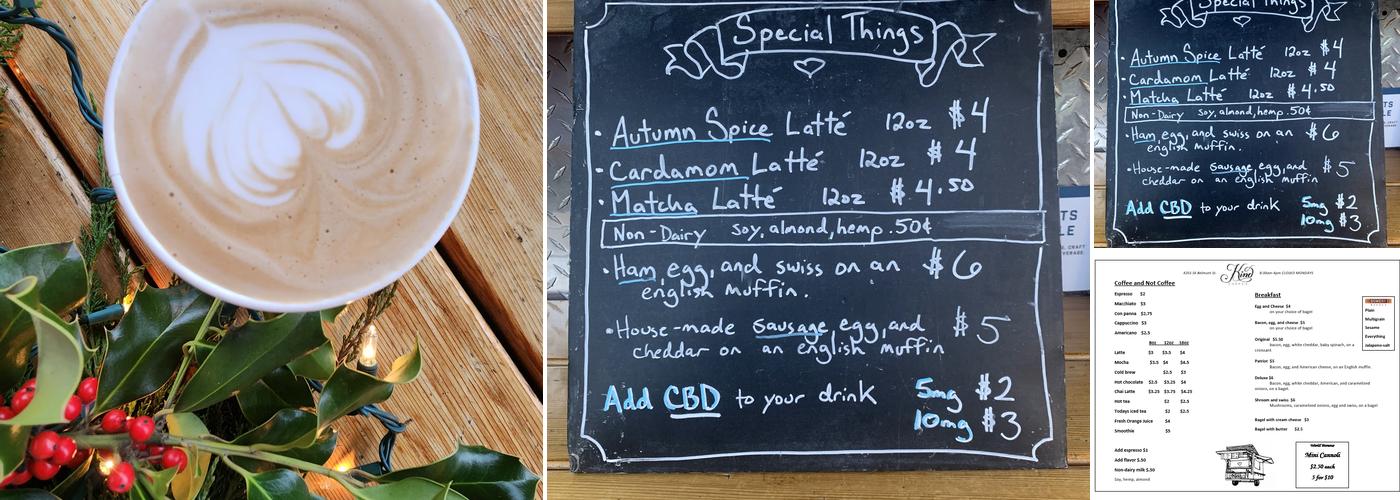 Special Things
• Autumn Spice Latté 12oz $4
• Cardamom Latté 12oz $4
• Matcha Latté 12oz $4.50
Non-Dairy soy, almond, hemp .50¢
• Ham, egg, and swiss on an $6
english muffin.
• House-made sausage, egg, and $5
cheddar on an english muffin
Add CBD to your drink 5mg $2
10mg $3
Special Things
• Autumn Spice Latté 12oz $4
• Cardamom Latté 12oz $4
• Matcha Latté 12oz $4.50
Non-Dairy soy, almond, hemp .50¢
• Ham, egg, and swiss on an $6
english muffin.
• House-made sausage, egg, and $5
cheddar on an english muffin
Add CBD to your drink 5mg $2
10mg $3
Kind
CLOSED MONDAYS
Coffee and Not Coffee
Espresso $2
Macchiato $3
Con panna $2.75
Cappuccino $3
Americano $2.5
8oz 12oz 16oz
Latte $3 $3.5 $4
Mocha $3.5 $4 $4.5
Cold brew $2.5 $3
Hot chocolate $2.5 $3.25 $4
Chai Latte $3.25 $3.75 $4.25
Hot tea $2 $2.5
Todays iced tea $2 $2.5
Fresh Orange Juice $4
Smoothie $5
Add espresso $1
Add flavor $.50
Non-dairy milk $.50
Soy, hemp, almond
Breakfast
Egg and Cheese $4
on your choice of bagel
Bacon, egg, and cheese $5
on your choice of bagel
Original $5.50
Bacon, egg, white cheddar, baby spinach, on a
croissant
Patriot $5
Bacon, egg, and American cheese, on an English muffin
Deluxe $6
Bacon, egg, white cheddar, American, and caramelized
onions, on a bagel.
Shroom and swiss $6
Mushrooms, caramelized onions, egg and swiss, on a bagel
Bagel with cream cheese $3
Bagel with butter $2.5
Plain
Multigrain
Sesame
Everything
Jalapeno-salt
World Famous
Mini Cannoli
$2.50 each
5 for $10